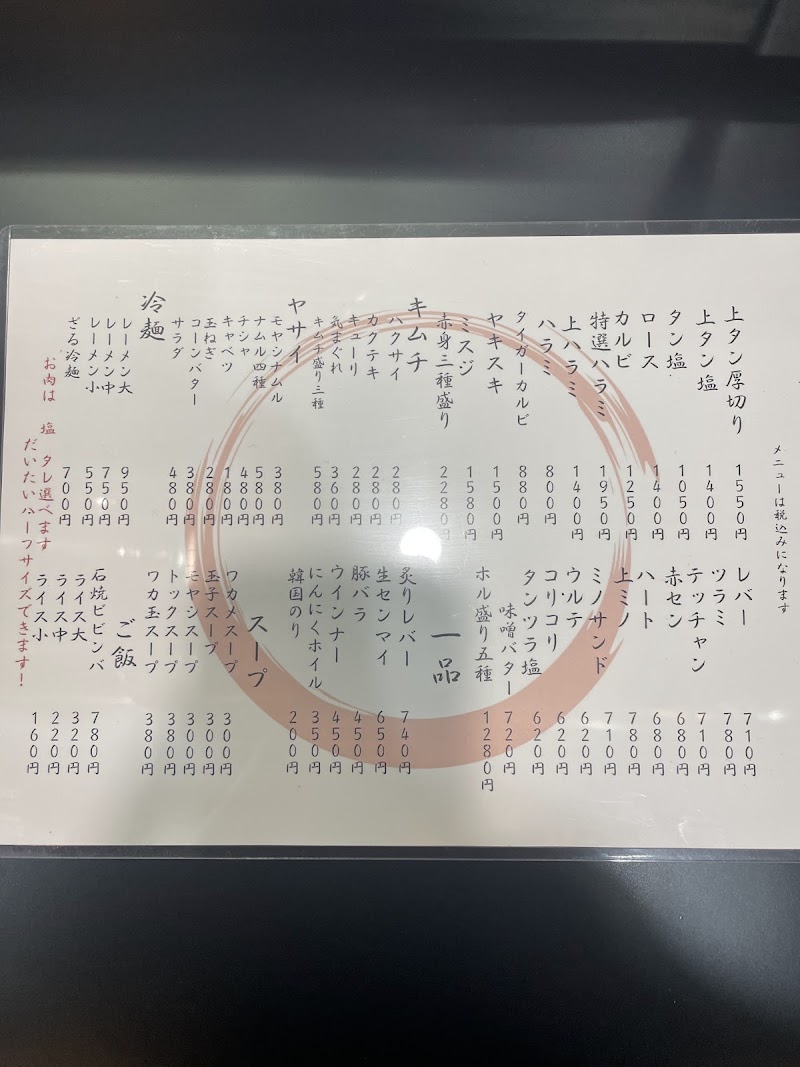 メニューは税込みになります
上タン厚切り 1550円
上タン塩 1400円
タン塩 1050円
ロース 1400円
カルビ 1250円
特選ハラミ 1950円
上ハラミ 1400円
ハラミ 800円
タイガーカルビ 880円
ヤキスキ 1500円
ミスジ 1580円
赤身三種盛り 2280円
キムチ
ハクサイ 280円
カクテキ 280円
キューリ 280円
気まぐれ 360円
キムチ盛り三種 580円
ヤサイ
モヤシナムル 380円
ナムル四種 580円
チシャ 480円
キャベツ 180円
玉ねぎ 280円
コーンバター 380円
サラダ 480円
冷麺
レーメン大 950円
レーメン中 750円
レーメン小 550円
ざる冷麺 700円
レバー 710円
ツラミ 780円
テッチャン 710円
赤セン 680円
ハート 680円
上ミノ 780円
ミノサンド 710円
ウルテ 620円
コリコリ 620円
タンツラ塩 620円
味噌バター 720円
ホル盛り五種 1280円
一品
炙りレバー 740円
生センマイ 650円
豚バラ 450円
ウインナー 450円
にんにくホイル 350円
韓国のり 200円
スープ
ワカメスープ 300円
玉子スープ 300円
モヤシスープ 300円
トックスープ 380円
ワカ玉スープ 380円
ご飯
石焼ビビンバ 780円
ライス大 320円
ライス中 220円
ライス小 160円
お肉は 塩 タレ選べます
だいたいハーフサイズできます!